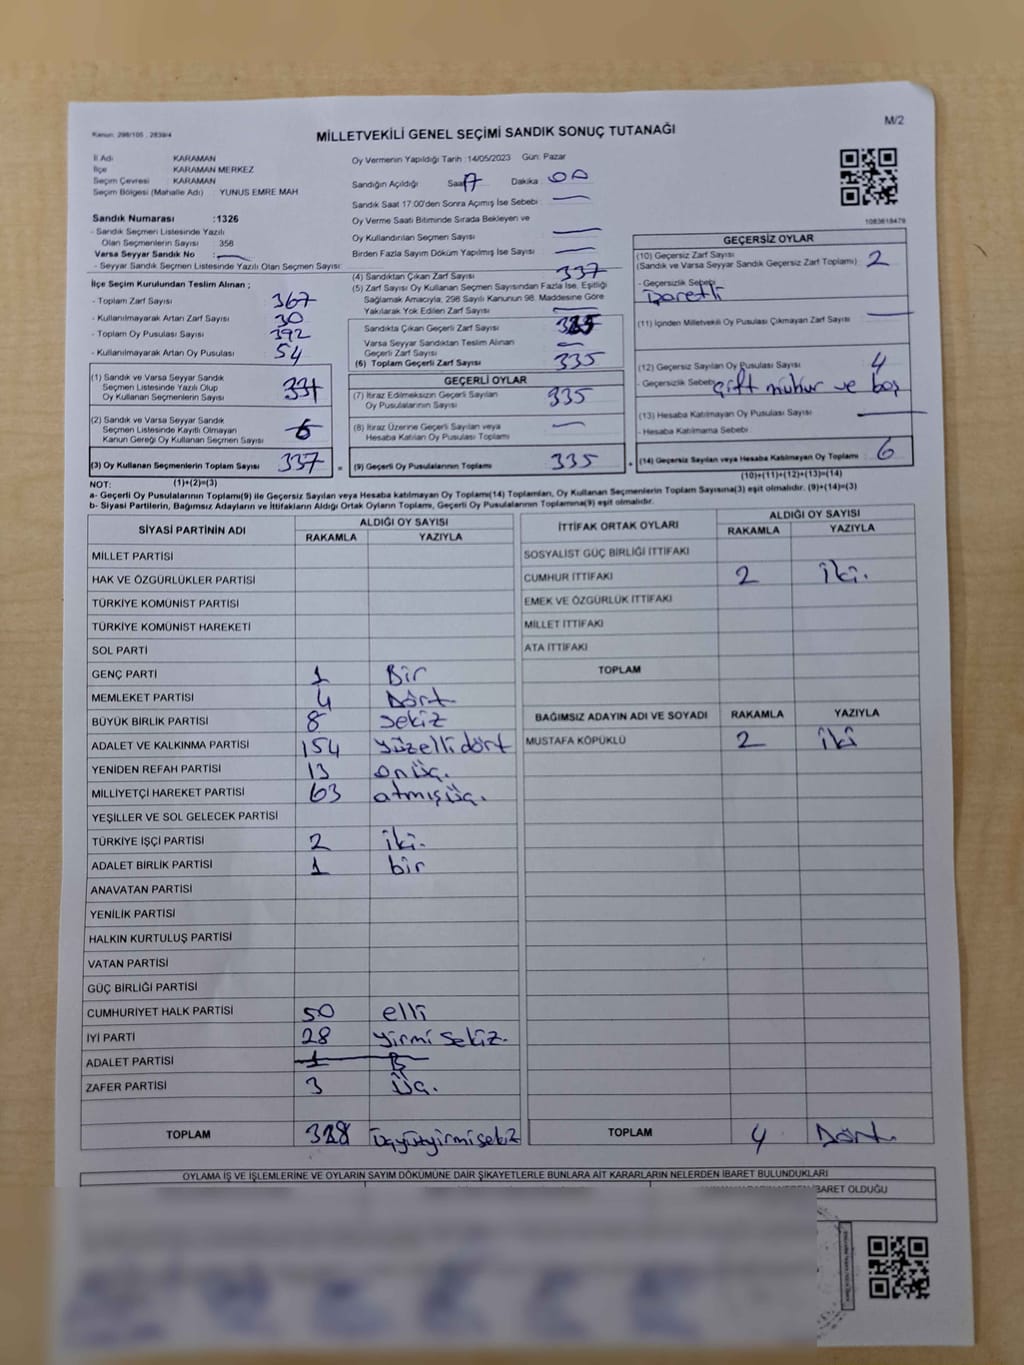 Kanun: 298/105 , 2839/4
M/2
MİLLETVEKİLİ GENEL SEÇİMİ SANDIK SONUÇ TUTANAĞI
İl Adı KARAMAN
İlçe KARAMAN MERKEZ
Seçim Çevresi KARAMAN
Seçim Bölgesi (Mahalle Adı) : YUNUS EMRE MAH
Sandık Numarası :1326
- Sandık Seçmen Listesinde Yazılı
Olan Seçmenlerin Sayısı : 358
Varsa Seyyar Sandık No
- Seyyar Sandık Seçmen Listesinde Yazılı Olan Seçmen Sayısı:
Oy Vermenin Yapıldığı Tarih :14/05/2023 Gün: Pazar
Sandığın Açıldığı Saat 17 Dakika 00
Sandık Saat 17:00'den Sonra Açımış İse Sebebi : —
Oy Verme Saati Bitiminde Sırada Bekleyen ve
Oy Kullandırılan Seçmen Sayısı —
Birden Fazla Sayım Döküm Yapılmış İse Sayısı : —
1083618479
İlçe Seçim Kurulundan Teslim Alınan ;
- Toplam Zarf Sayısı 367
- Kullanılmayarak Artan Zarf Sayısı 30
- Toplam Oy Pusulası Sayısı 392
- Kullanılmayarak Artan Oy Pusulası 54
(1) Sandık ve Varsa Seyyar Sandık
Seçmen Listesinde Yazılı Olup
Oy Kullanan Seçmenlerin Sayısı 337
(2) Sandık ve Varsa Seyyar Sandık
Seçmen Listesinde Kayıtlı Olmayan
Kanun Gereği Oy Kullanan Seçmen Sayısı
(3) Oy Kullanan Seçmenlerin Toplam Sayısı 337
(1)+(2)=(3)
(4) Sandıktan Çıkan Zarf Sayısı 337
(5) Zarf Sayısı Oy Kullanan Seçmen Sayısından Fazla İse, Eşitliği
Sağlamak Amacıyla, 298 Sayılı Kanunun 98. Maddesine Göre
Yakılarak Yok Edilen Zarf Sayısı —
Sandıkta Çıkan Geçerli Zarf Sayısı 335
Varsa Seyyar Sandıktan Teslim Alınan
Geçerli Zarf Sayısı —
(6) Toplam Geçerli Zarf Sayısı 335
GEÇERLİ OYLAR
(7) İtiraz Edilmeksizin Geçerli Sayılan
Oy Pusulalarının Sayısı 335
(8) İtiraz Üzerine Geçerli Sayılan veya
Hesaba Katılan Oy Pusulası Toplamı —
= (9) Geçerli Oy Pusulalarının Toplamı 335
GEÇERSİZ OYLAR
(10) Geçersiz Zarf Sayısı
(Sandık ve Varsa Seyyar Sandık Geçersiz Zarf Toplamı) 2
- Geçersizlik Sebebi
işaretli
(11) İçinden Milletvekili Oy Pusulası Çıkmayan Zarf Sayısı —
(12) Geçersiz Sayılan Oy Pusulası Sayısı 4
- Geçersizlik Sebebi çift mühür ve boş
(13) Hesaba Katılmayan Oy Pusulası Sayısı —
- Hesaba Katılmama Sebebi :
+ (14) Geçersiz Sayılan veya Hesaba Katılmayan Oy Toplamı 6
(10)+(11)+(12)+(13)=(14)
NOT:
a- Geçerli Oy Pusulalarının Toplamı(9) ile Geçersiz Sayılan veya Hesaba katılmayan Oy Toplamı(14) Toplamları, Oy Kullanan Seçmenlerin Toplam Sayısına(3) eşit olmalıdır. (9)+(14)=(3)
b- Siyasi Partilerin, Bağımsız Adayların ve İttifakların Aldığı Ortak Oyların Toplamı, Geçerli Oy Pusulalarının Toplamına(9) eşit olmalıdır.
SİYASİ PARTİNİN ADI ALDIĞI OY SAYISI
RAKAMLA YAZIYLA
MİLLET PARTİSİ
HAK VE ÖZGÜRLÜKLER PARTİSİ
TÜRKİYE KOMÜNİST PARTİSİ
TÜRKİYE KOMÜNİST HAREKETİ
SOL PARTİ
GENÇ PARTİ 1 Bir
MEMLEKET PARTİSİ 4 Dört
BÜYÜK BİRLİK PARTİSİ 8 sekiz
ADALET VE KALKINMA PARTİSİ 154 yüzellidört
YENİDEN REFAH PARTİSİ 13 onüç.
MİLLİYETÇİ HAREKET PARTİSİ 63 atmışüç.
YEŞİLLER VE SOL GELECEK PARTİSİ
TÜRKİYE İŞÇİ PARTİSİ 2 iki.
ADALET BİRLİK PARTİSİ 1 bir
ANAVATAN PARTİSİ
YENİLİK PARTİSİ
HALKIN KURTULUŞ PARTİSİ
VATAN PARTİSİ
GÜÇ BİRLİĞİ PARTİSİ
CUMHURİYET HALK PARTİSİ 50 elli
İYİ PARTİ 28 yirmi sekiz.
ADALET PARTİSİ 1 B
ZAFER PARTİSİ 3 Üç.
TOPLAM 328 üçyüzyirmisekiz
İTTİFAK ORTAK OYLARI ALDIĞI OY SAYISI
RAKAMLA YAZIYLA
SOSYALİST GÜÇ BİRLİĞİ İTTİFAKI
CUMHUR İTTİFAKI 2 iki.
EMEK VE ÖZGÜRLÜK İTTİFAKI
MİLLET İTTİFAKI
ATA İTTİFAKI
TOPLAM
BAĞIMSIZ ADAYIN ADI VE SOYADI RAKAMLA YAZIYLA
MUSTAFA KÖPÜKLÜ 2 iki
TOPLAM 4 Dört.
OYLAMA İŞ VE İŞLEMLERİNE VE OYLARIN SAYIM DÖKÜMÜNE DAİR ŞİKAYETLERLE BUNLARA AİT KARARLARIN NELERDEN İBARET BULUNDUKLARI
İBARET OLDUĞU